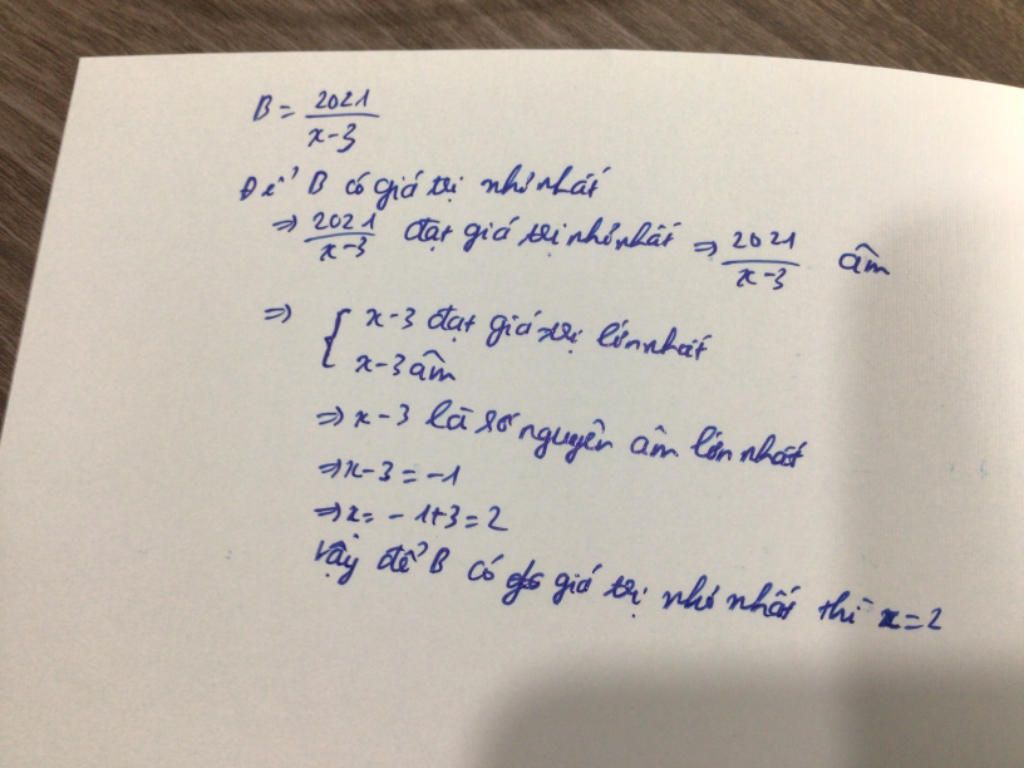 B = 2021/(x-3)
Để B có giá trị nhỏ nhất
=> 2021/(x-3) đạt giá trị nhỏ nhất => 2021/(x-3) âm
=> { x-3 đạt giá trị lớn nhất
x-3 âm
=> x-3 là số nguyên âm lớn nhất
=> x-3 = -1
=> x = -1+3 = 2
Vậy để B có giá trị nhỏ nhất thì x = 2